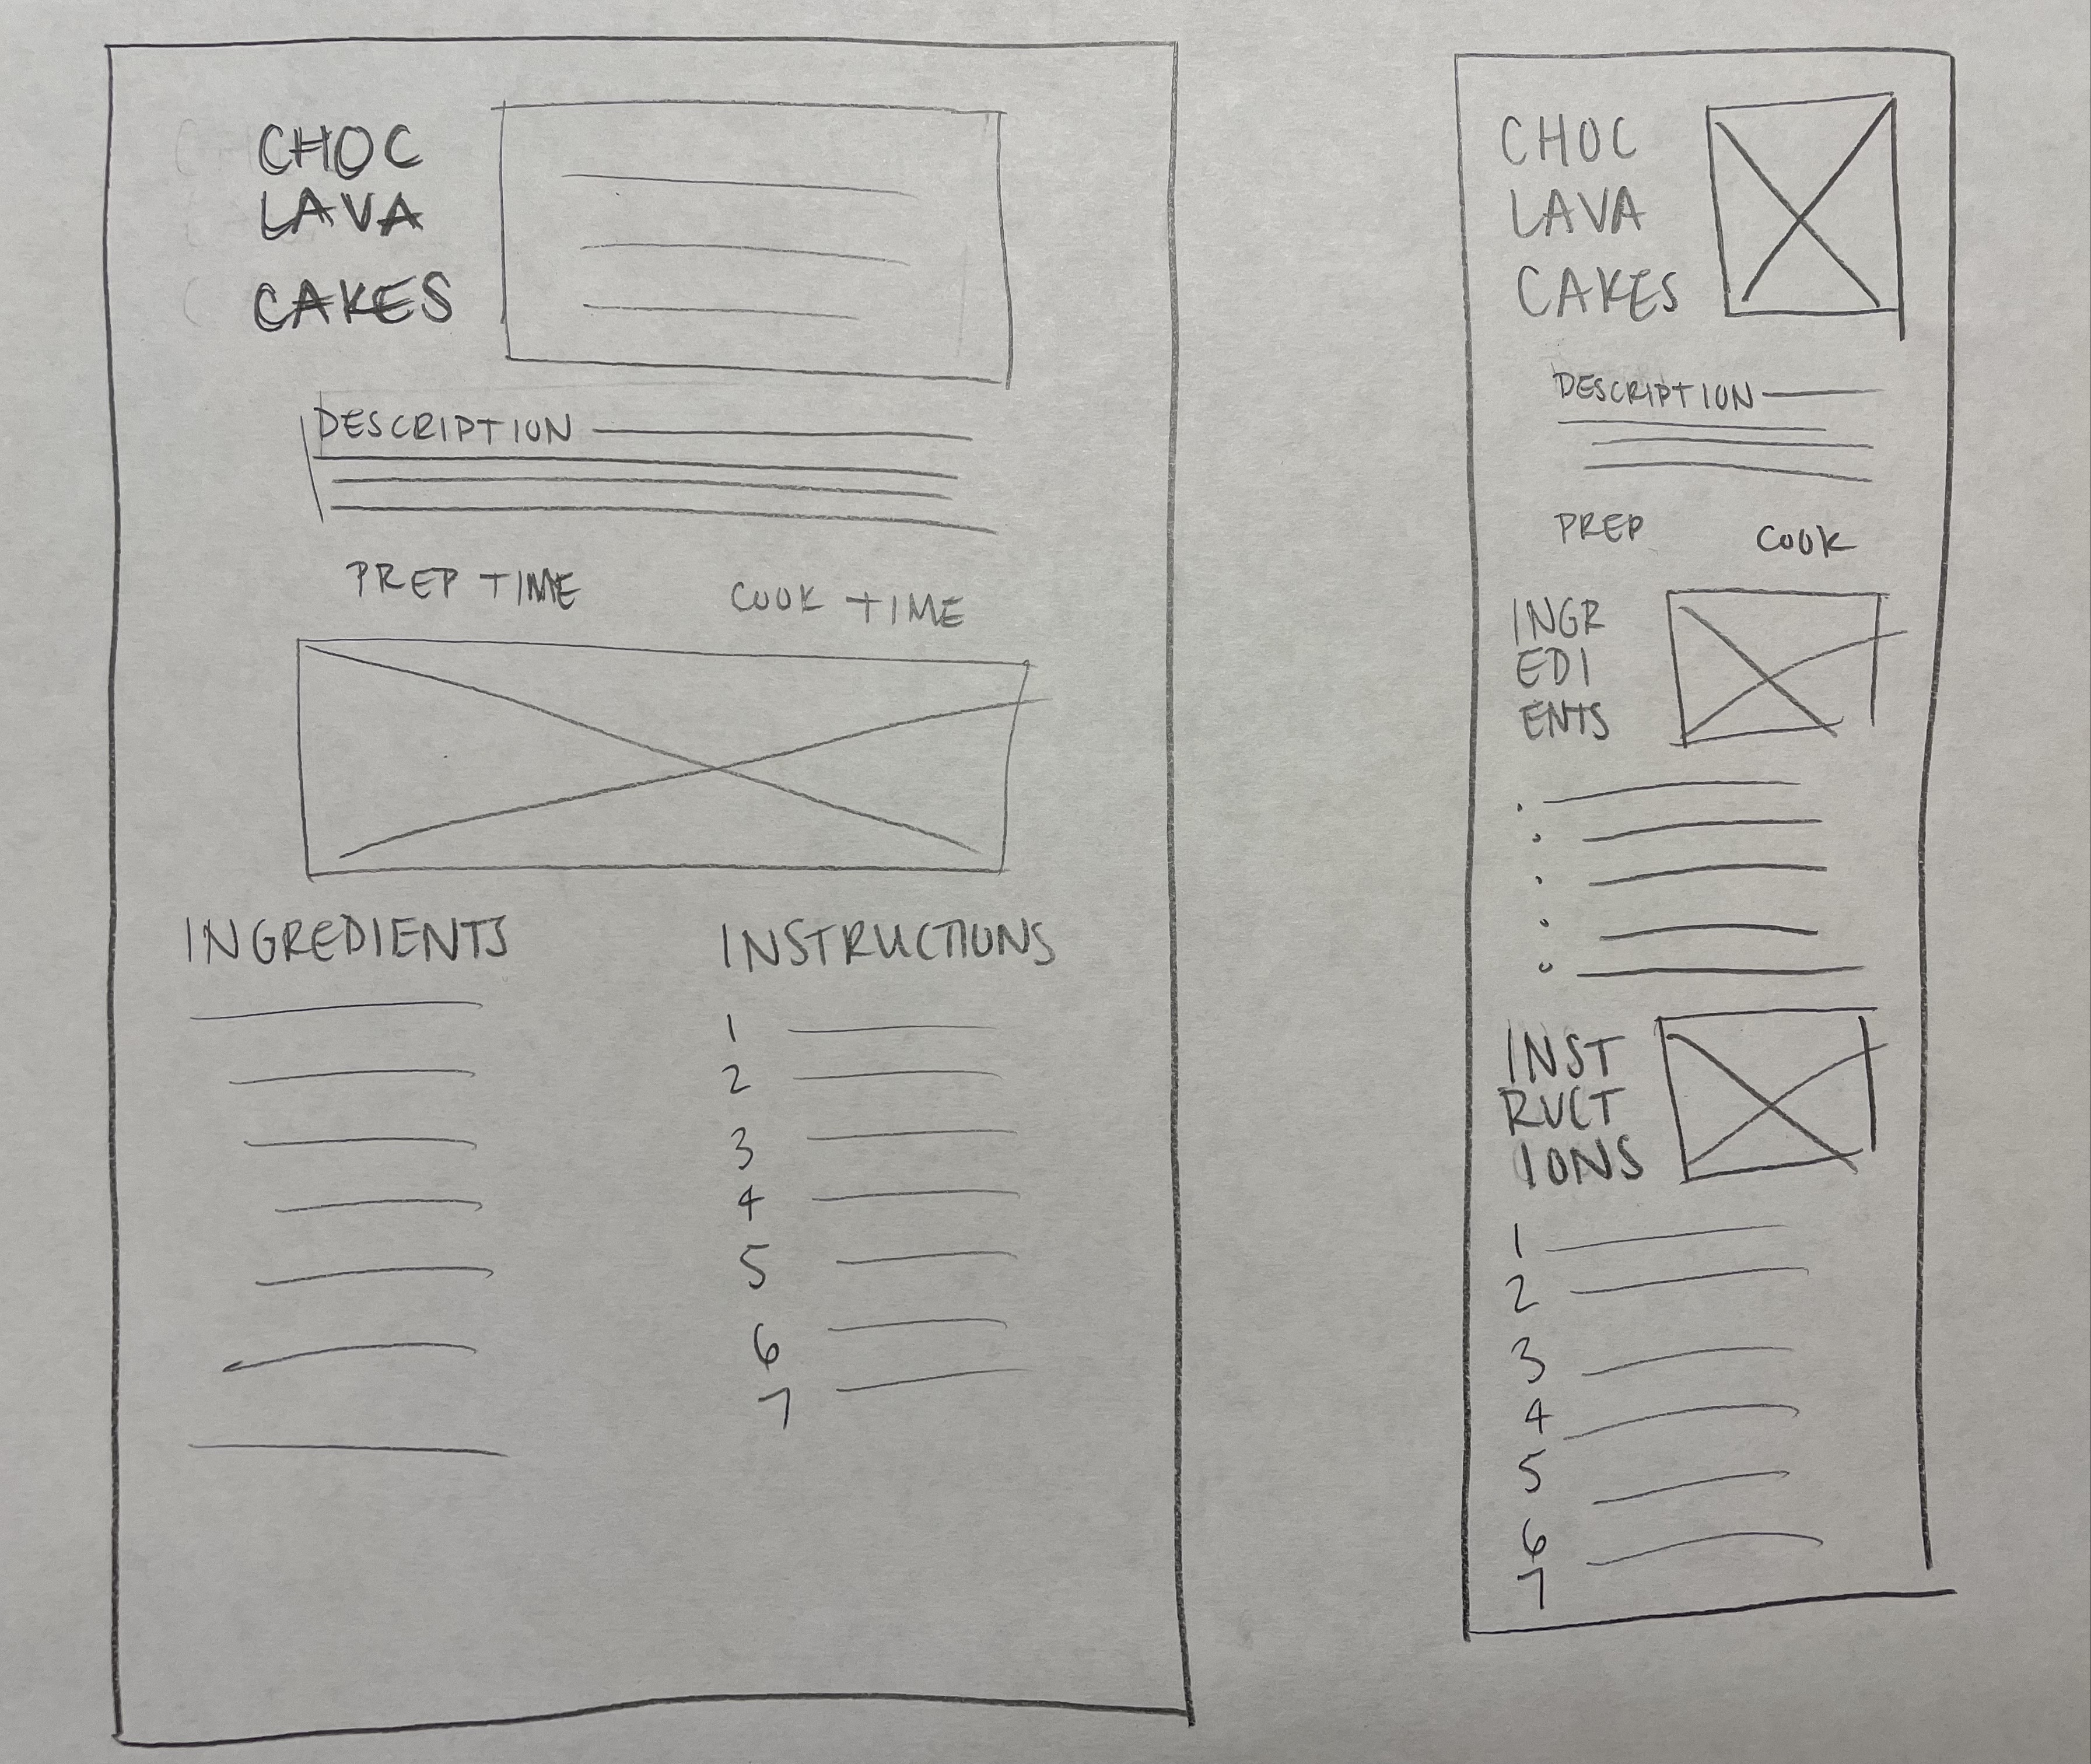 CHOC
LAVA
CAKES
DESCRIPTION
PREP TIME COOK TIME
INGREDIENTS INSTRUCTIONS
1
2
3
4
5
6
7
CHOC
LAVA
CAKES
DESCRIPTION
PREP COOK
INGR
EDI
ENTS
INST
RUCT
IONS
1
2
3
4
5
6
7